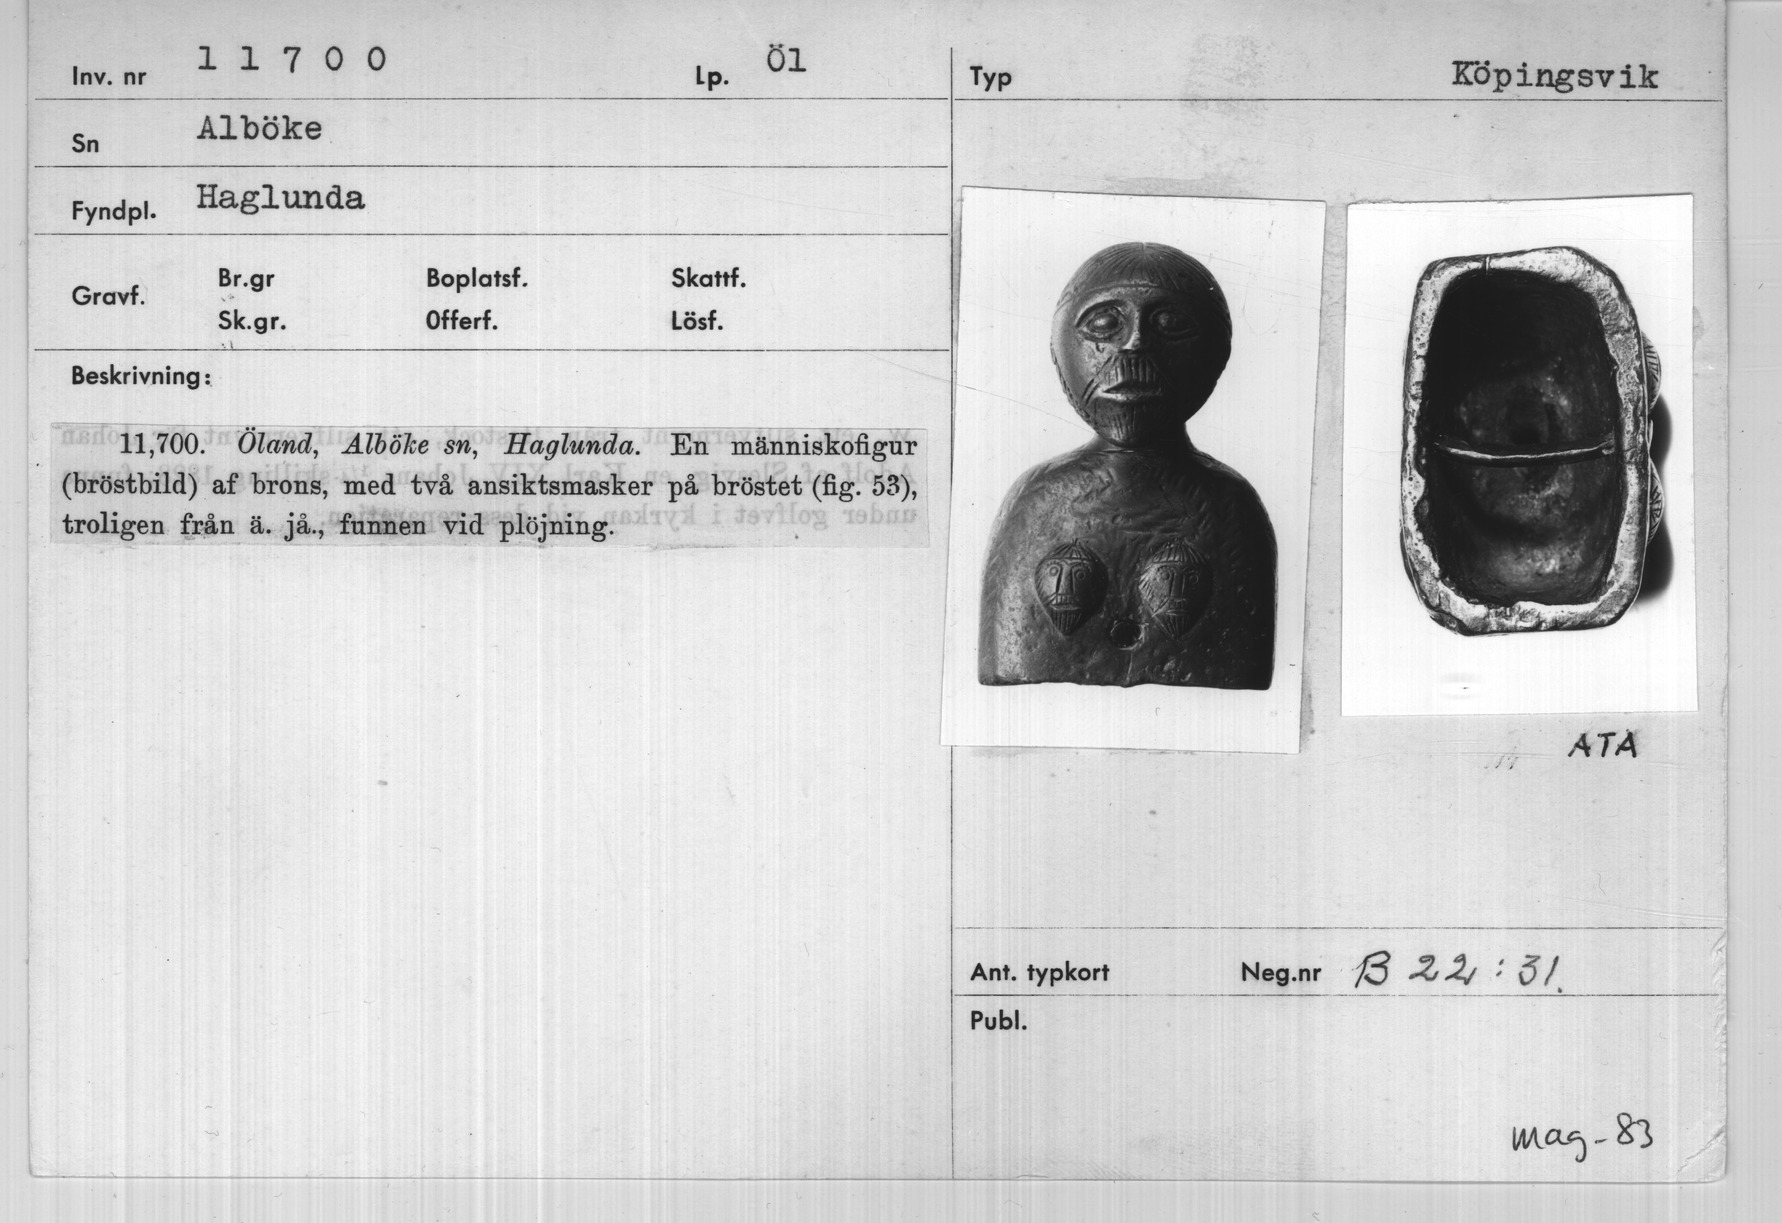 Inv. nr 11700 Lp. Öl
Sn Alböke
Fyndpl. Haglunda
Gravf. Br.gr Boplatsf. Skattf.
Sk.gr. Offerf. Lösf.
Beskrivning:
11,700. Öland, Alböke sn, Haglunda. En människofigur
(bröstbild) af brons, med två ansiktsmasker på bröstet (fig. 53),
troligen från ä. jå., funnen vid plöjning.
Typ Köpingsvik
ATA
Ant. typkort Neg.nr B 22:31.
Publ.
mag-83